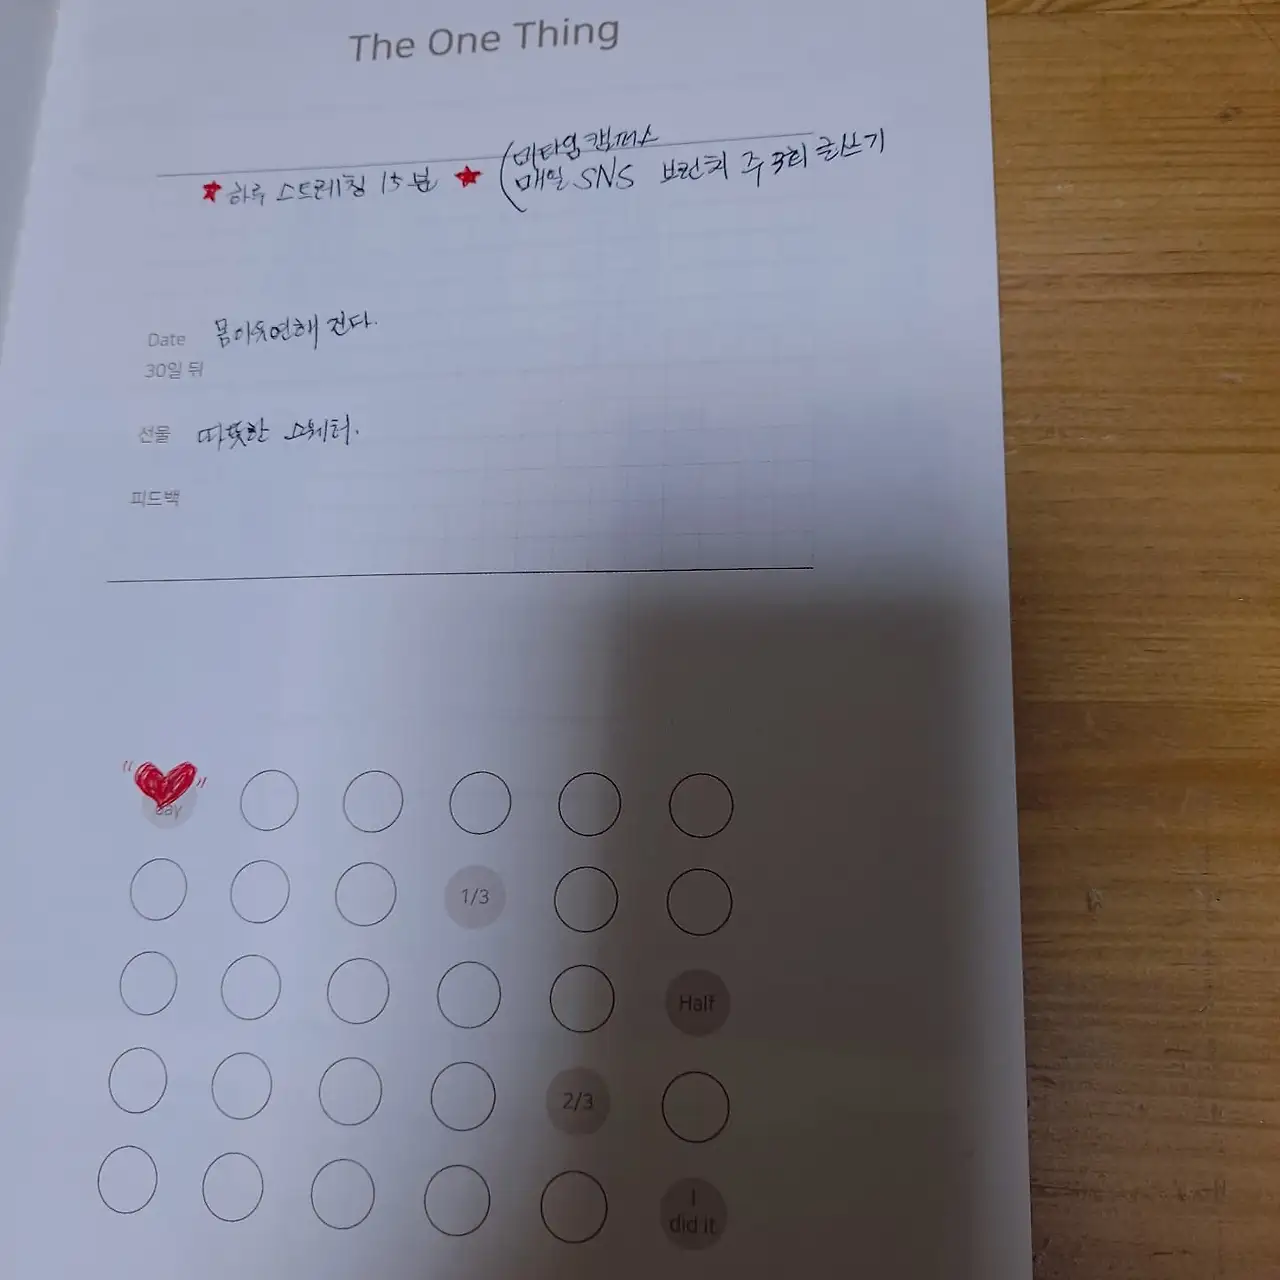 The One Thing
(미타임 캠퍼스
★하루 스트레칭 15분 ★ (매일 SNS 브런치 주 3회 글쓰기
Date 몸이유연해 진다.
30일 뒤
선물 따뜻한 스웨터.
피드백
day
1/3
Half
2/3
I
did it